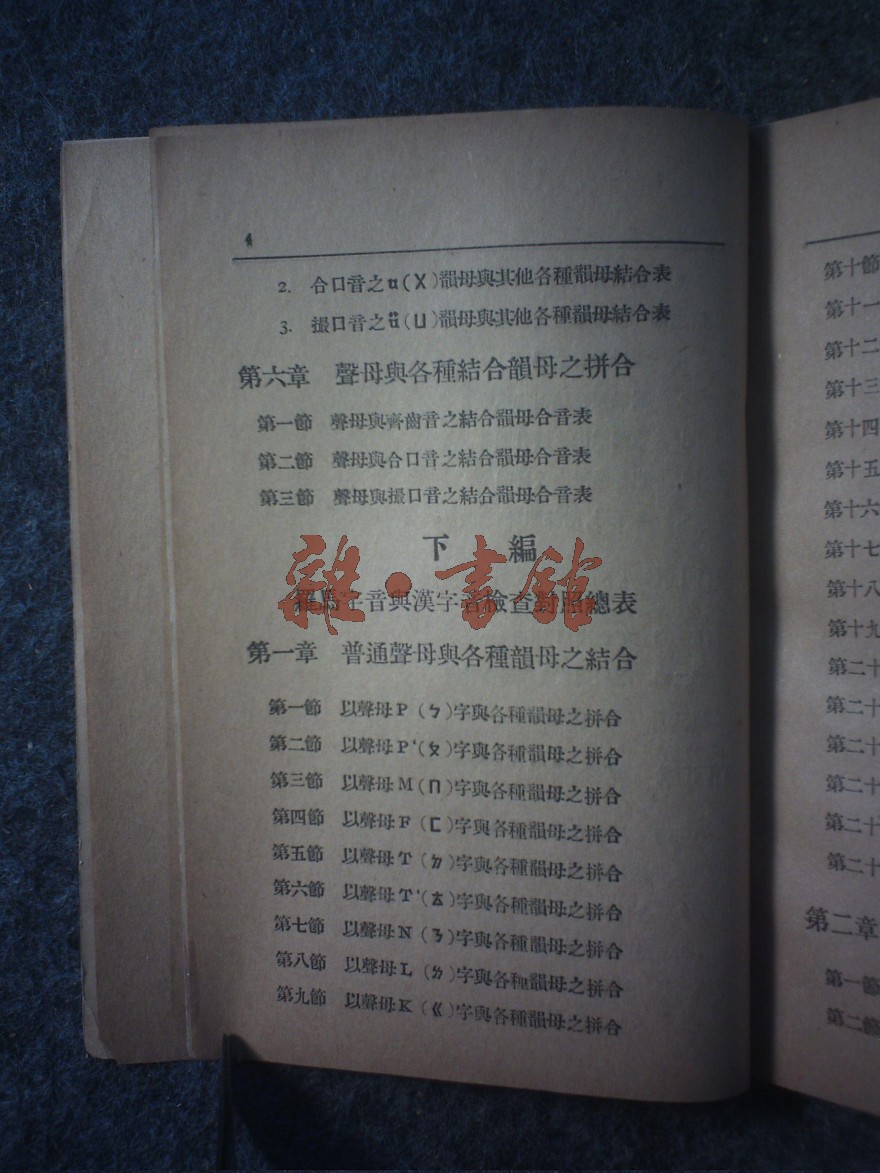 4
2. 合口音之u(ㄨ)韻母與其他各種韻母結合表
3. 撮口音之ü(ㄩ)韻母與其他各種韻母結合表
第六章 聲母與各種結合韻母之拼合
第一節 聲母與齊齒音之結合韻母合音表
第二節 聲母與合口音之結合韻母合音表
第三節 聲母與撮口音之結合韻母合音表
下 編
羅馬字音與漢字音檢查對照總表
雜·書館
第一章 普通聲母與各種韻母之結合
第一節 以聲母P(ㄅ)字與各種韻母之拼合
第二節 以聲母P'(ㄆ)字與各種韻母之拼合
第三節 以聲母M(ㄇ)字與各種韻母之拼合
第四節 以聲母F(ㄈ)字與各種韻母之拼合
第五節 以聲母T(ㄉ)字與各種韻母之拼合
第六節 以聲母T'(ㄊ)字與各種韻母之拼合
第七節 以聲母N(ㄋ)字與各種韻母之拼合
第八節 以聲母L(ㄌ)字與各種韻母之拼合
第九節 以聲母K(ㄍ)字與各種韻母之拼合
第十節
第十一
第十二
第十三
第十四
第十五
第十六
第十七
第十八
第十九
第二十
第二十
第二十
第二十
第二十
第二十
第二章
第一節
第二節